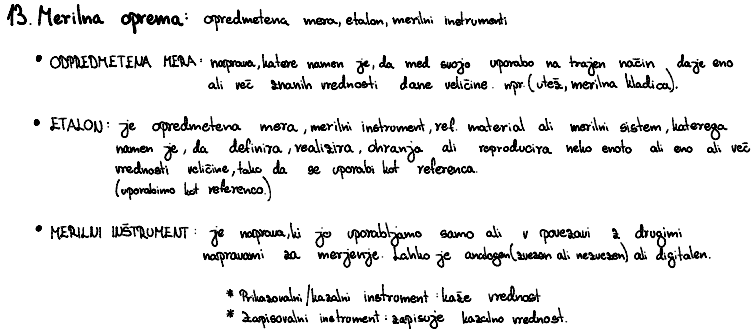 13. Merilna oprema: opredmetena mera, etalon, merilni instrumenti
• ODPREDMETENA MERA: naprava, katere namen je, da med svojo uporabo na trajen način daje eno
ali več znanih vrednosti dane veličine. npr. (utež, merilna kladica).
• ETALON: je opredmetena mera, merilni instrument, ref. material ali merilni sistem, katerega
namen je, da definira, realizira, ohranja ali reproducira neko enoto ali eno ali več
vrednosti veličine, tako da se uporabi kot referenca.
(uporabimo kot referenco.)
• MERILNI INŠTRUMENT: je naprava, ki jo uporabljamo samo ali v povezavi z drugimi
napravami za merjenje. Lahko je analogen (zvezen ali nezvezen) ali digitalen.
* Prikazovalni/kazalni instrument: kaže vrednost
* Zapisovalni instrument: zapisuje kazalno vrednost.